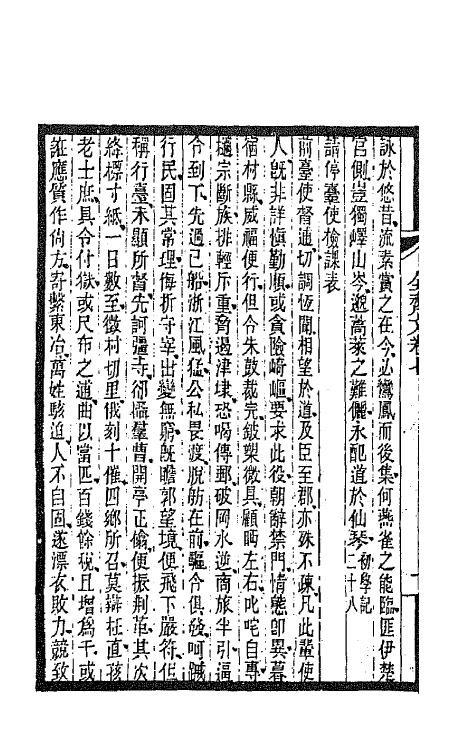 詠於悠昔流素賞之在今必鸞鳳而後集何燕雀之能臨匪伊楚
宮側豈獨嶧山岑遬蒿萊之難儷永配道於仙琴初學記二十八
請停臺使檢課表
前臺使督逋切調恆聞相望於道及臣至郡亦殊不疎凡此輩使
人旣非詳愼勤順或貪險崎嶇要求此役朝辭禁門情態卽異暮
宿村縣威福便行但令朱鼓裁完鈹槊微具顧眄左右叱咤自專
擿宗斷族排輕斥重脅遏津埭恐喝傳郵破岡水逆商旅半引逼
令到下先過已船浙江風猛公私畏渡脫舫在前驅令俱發呵蹴
行民固其常理侮折守宰出變無窮旣瞻郭望境便飛下嚴符但
稱行臺未顯所督先訶彊寺卻攝羣曹開亭正榻便振荆革其次
絳標寸紙一日數至徵村切里俄刻十催四鄉所召莫辯枉直孩
老士庶具令付獄或尺布之逋曲以當匹百錢餘稅且增爲千或
誑應質作尙方寄繫東冶萬姓駭迫人不自固遂漂衣敗力競致
全齊文卷七